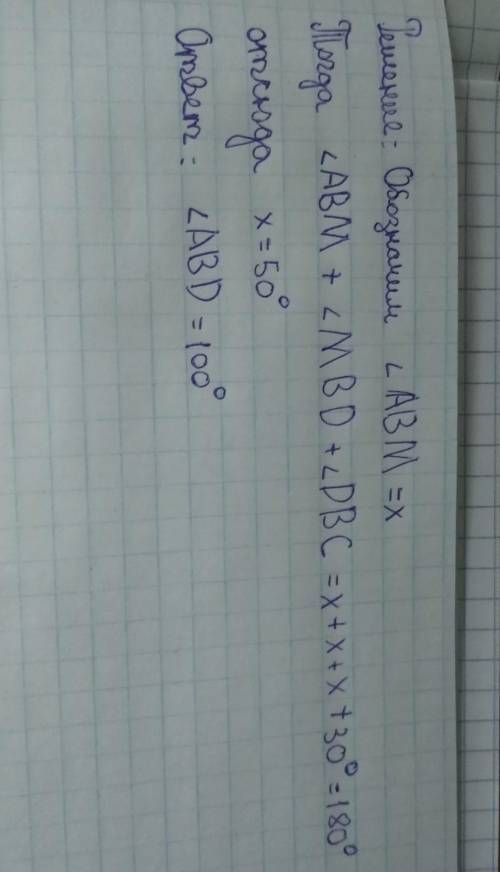 Решение: Обозначим ∠ABM = x
Тогда ∠ABM + ∠MBD + ∠DBC = x + x + x + 30° = 180°
отсюда x = 50°
Ответ: ∠ABD = 100°